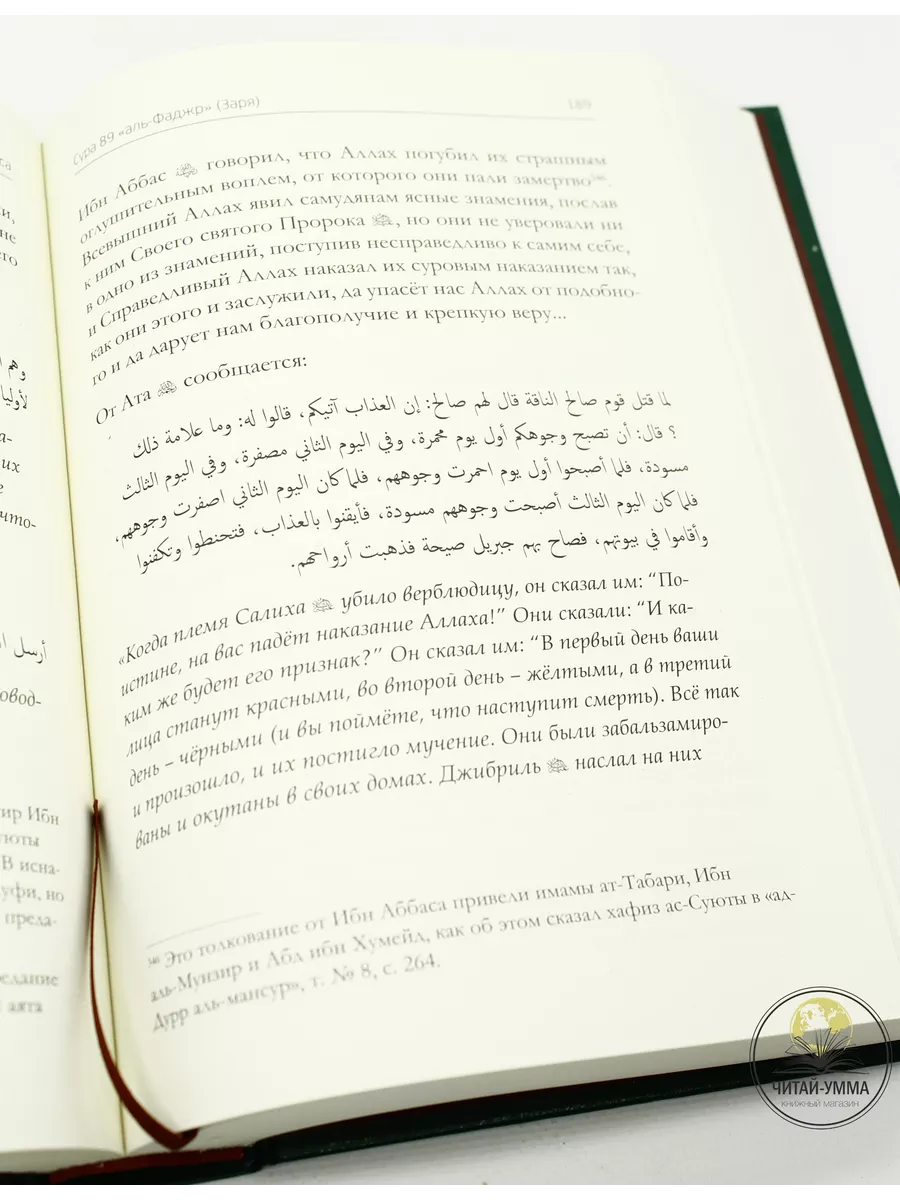 са
ти,
не
его
وهم ا
لأوليا
а-
их
е
что-
أرسل ا
овод-
ир Ибн
уюты
В исна-
уфи, но
преда-
едание
аята
Сура 89 «аль-Фаджр» (Заря)
189
Ибн Аббас говорил, что Аллах погубил их страшным
оглушительным воплем, от которого они пали замертво.
Всевышний Аллах явил самудянам ясные знамения, послав
к ним Своего святого Пророка ﷺ, но они не уверовали ни
в одно из знамений, поступив несправедливо к самим себе,
и Справедливый Аллах наказал их суровым наказанием так,
как они этого и заслужили, да упасёт нас Аллах от подобно-
го и да дарует нам благополучие и крепкую веру...
От Ата сообщается:
لما قتل قوم صالح الناقة قال لهم صالح: إن العذاب آتيكم، قالوا له: وما علامة ذلك
؟ قال: أن تصبح وجوهكم أول يوم محمرة، وفي اليوم الثاني مصفرة، وفي اليوم الثالث
مسودة، فلما أصبحوا أول يوم احمرت وجوههم، فلما كان اليوم الثاني اصفرت وجوههم،
فلما كان اليوم الثالث أصبحت وجوههم مسودة، فأيقنوا بالعذاب، فتحنطوا وتكفنوا
وأقاموا في بيوتهم، فصاح بهم جبريل صيحة فذهبت أرواحهم.
«Когда племя Салиха убило верблюдицу, он сказал им: “По-
истине, на вас падёт наказание Аллаха!” Они сказали: “И ка-
ким же будет его признак?” Он сказал им: “В первый день ваши
лица станут красными, во второй день – жёлтыми, а в третий
день – чёрными (и вы поймёте, что наступит смерть). Всё так
и произошло, и их постигло мучение. Они были забальзамиро-
ваны и окутаны в своих домах. Джибриль наслал на них
Это толкование от Ибн Аббаса привели имамы ат-Табари, Ибн
аль-Мунзир и Абд ибн Хумейд, как об этом сказал хафиз ас-Суюты в «ад-
Дурр аль-мансур», т. № 8, с. 264.
ЧИТАЙ-УММА
КНИЖНЫЙ МАГАЗИН